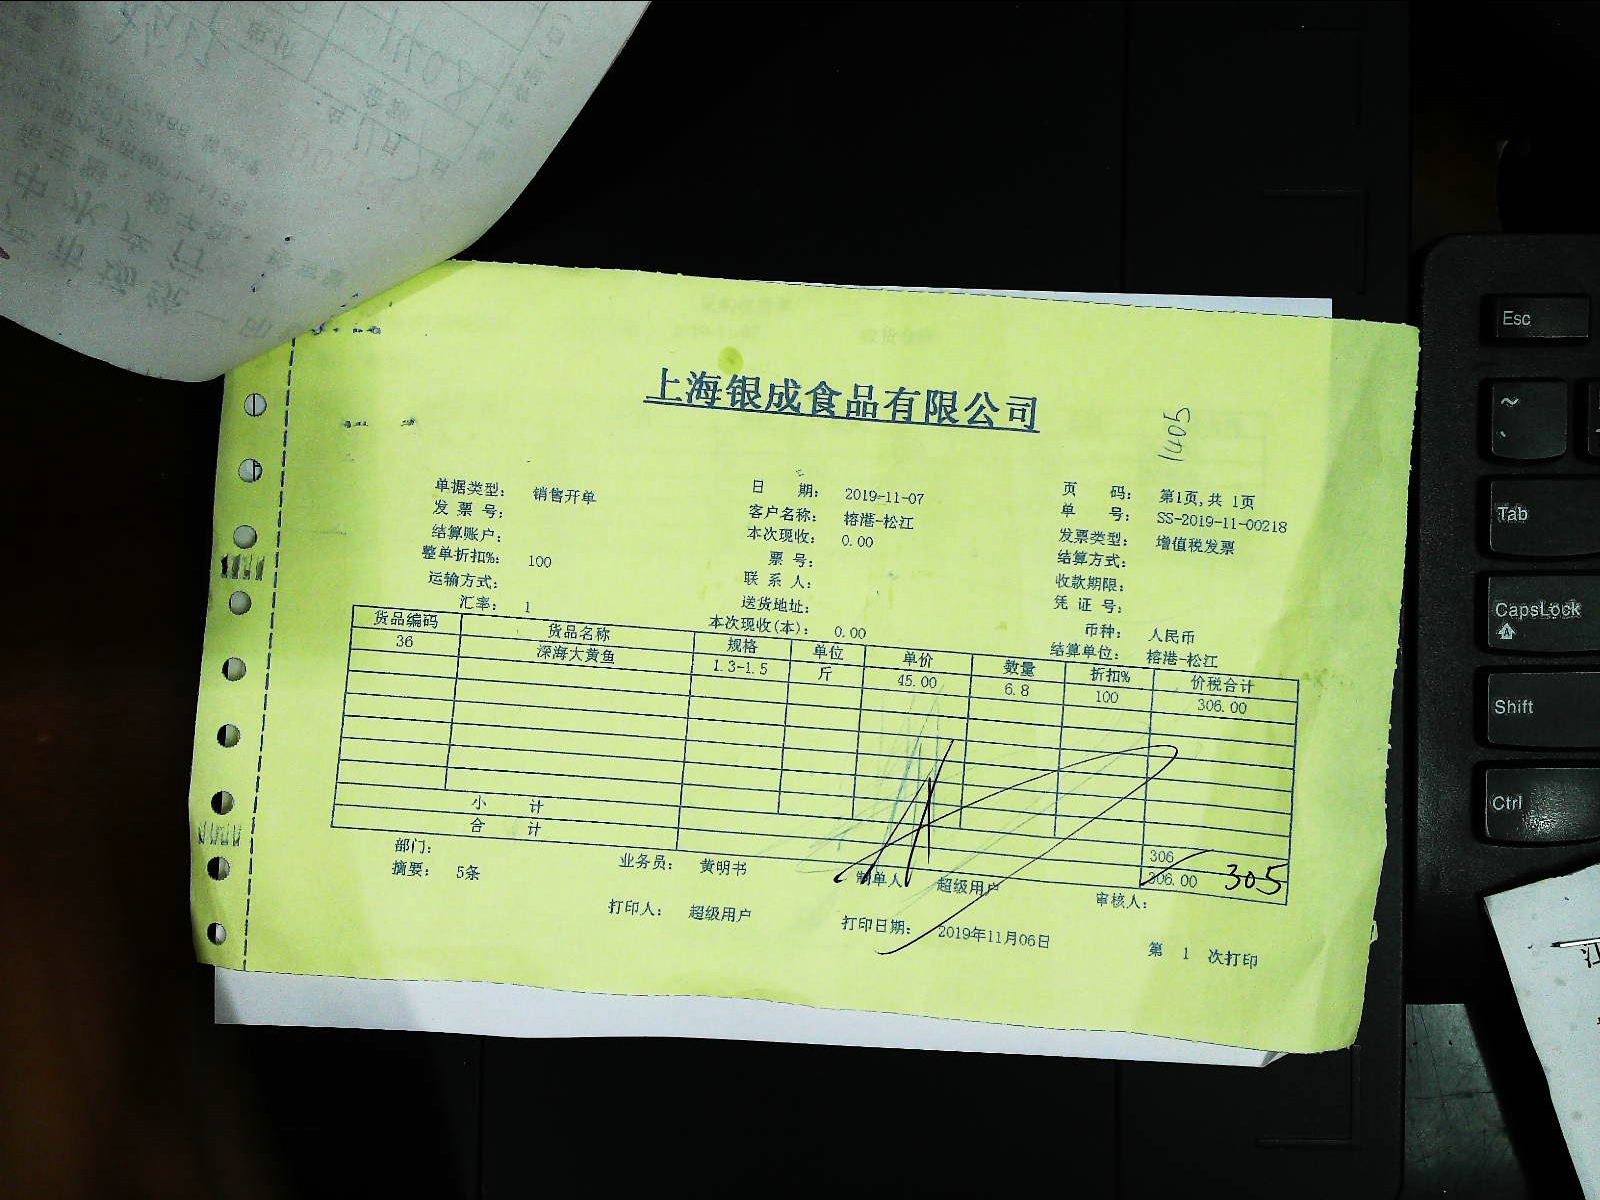 上海银成食品有限公司
1405
单据类型: 销售开单 日 期: 2019-11-07 页 码: 第1页,共 1页
发 票 号: 客户名称: 榕港-松江 单 号: SS-2019-11-00218
结算账户: 本次现收: 0.00 发票类型: 增值税发票
整单折扣%: 100 票 号: 结算方式:
运输方式: 联 系 人: 收款期限:
汇率: 1 送货地址: 凭 证 号:
本次现收(本): 0.00 币种: 人民币
结算单位: 榕港-松江
货品编码 货品名称 规格 单位 单价 数量 折扣% 价税合计
36 深海大黄鱼 1.3-1.5 斤 45.00 6.8 100 306.00
小 计 306
合 计 306.00 305
部门: 业务员: 黄明书 制单人 超级用户 审核人:
摘要: 5条
打印人: 超级用户 打印日期: 2019年11月06日 第 1 次打印
Esc
~
Tab
CapsLock
A
Shift
Ctrl